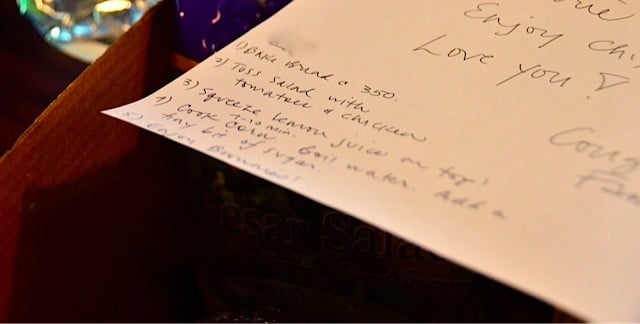 Enjoy
Love you!
1) Bake Bread @ 350.
2) Toss Salad with
tomatoes & chicken.
3) Squeeze lemon juice on top!
4) Cook Corn. Boil water. Add a
7-10 min.
tiny bit of sugar
5) Enjoy Brownies!
Cong
esar Sala